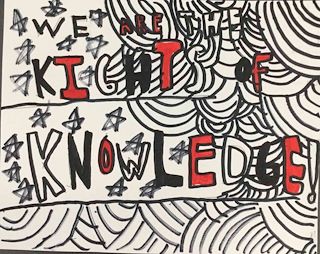 WE ARE THE
KIGHTS OF
KNOWLEDGE!